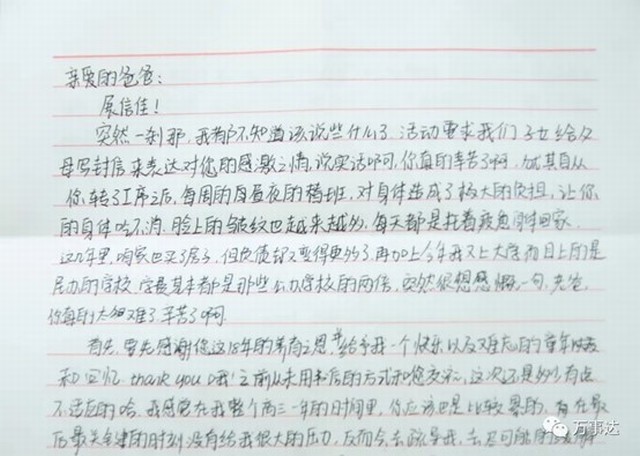 亲爱的爸爸：
展信佳！
突然一刹那，我都不知道该说些什么了。活动要求我们子女给父
母写封信来表达对您的感激之情，说实话啊，你真的辛苦了啊，尤其自从
你转了工序之后，每周的昼夜的换班，对身体造成了极大的负担，让你
的身体吃不消，脸上的皱纹也越来越多，每天都是拖着疲惫身体回家
这几年里，咱家也买了房子，但负债却又变得更多了，再加上今年我又上大学而且上的是
民办的学校，学费基本都是那些公办学校的两倍，突然很想感慨一句，老爸，
你真的太难了，辛苦了啊。
首先，要先感谢您这18年的养育之恩，给予我一个快乐以及难忘的童年时光
和回忆，thank you 哦！之前从未用书信的方式和您交流，这次还是多少有点
不适应的哈，我感觉在我整个高三一年的时间里，你应该也是比较累的，有在最
后最关键的时刻没有给我很大的压力，反而会去疏导我，去尽可能的
万事达